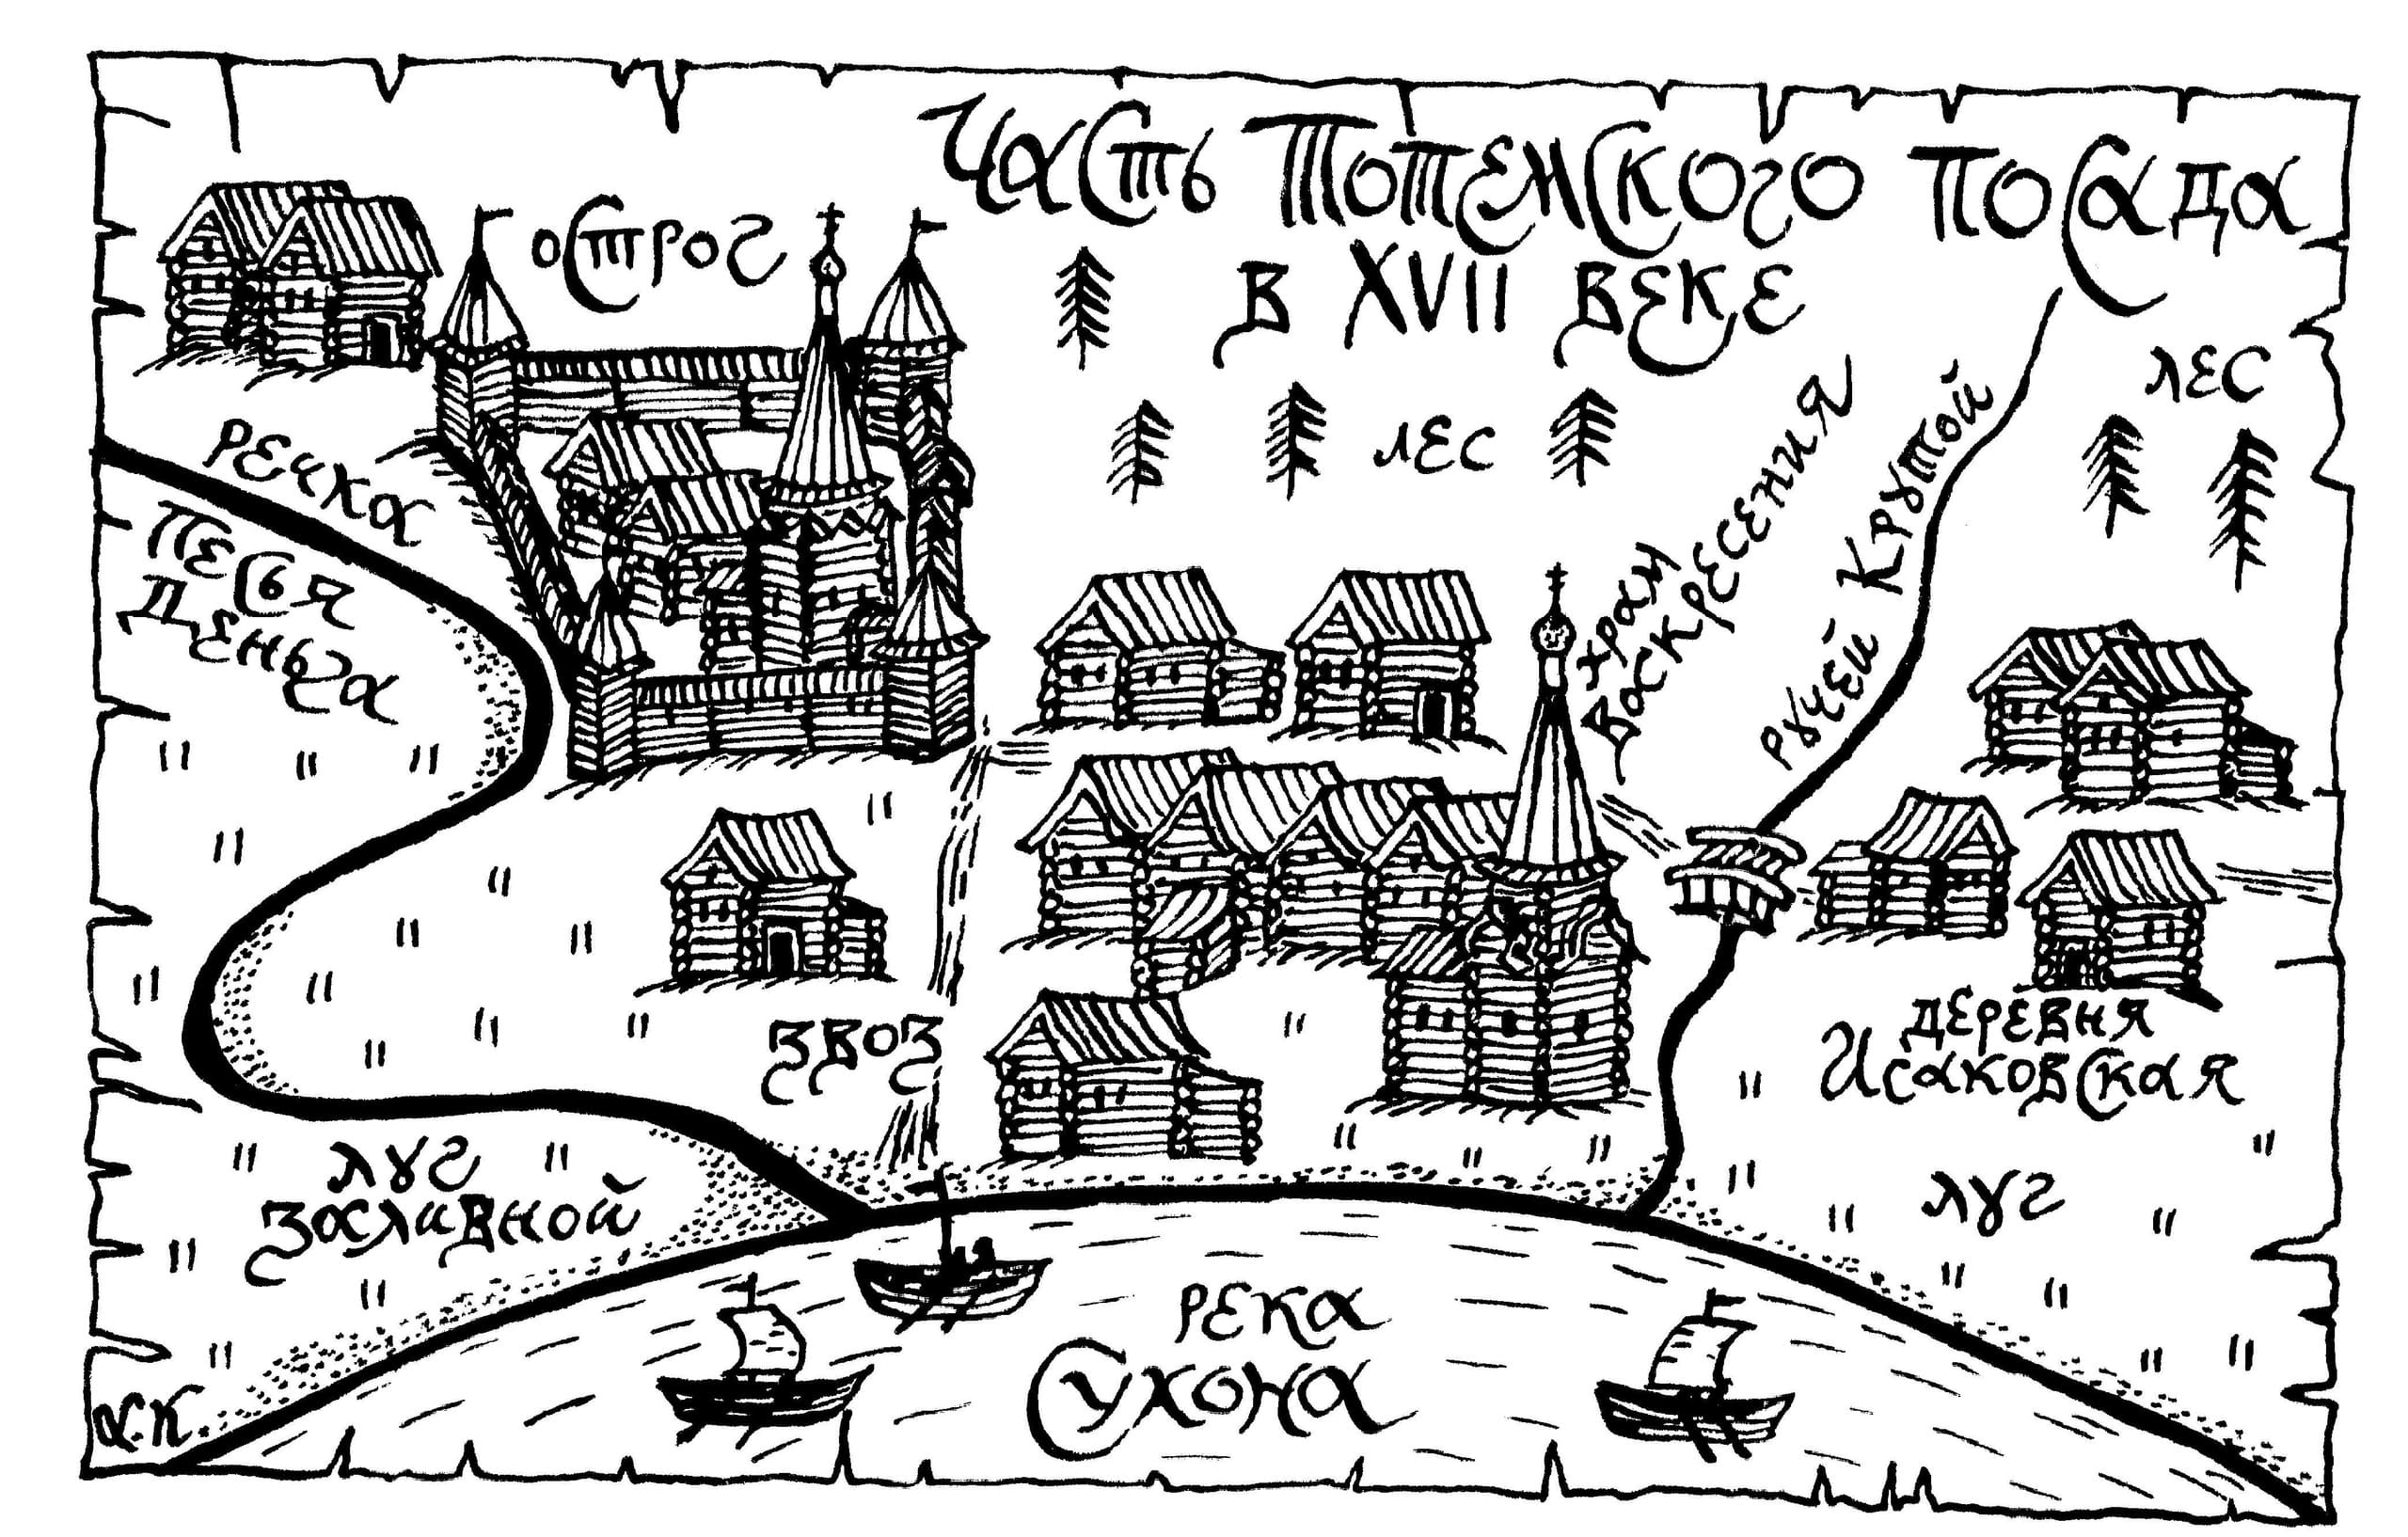 Часть Тотемского посада
в XVII веке
острог
лес
лес
речка
Песья
Деньга
храм
Воскресения
ручей Крутой
звоз
деревня
Исаковская
луг
Заславной
луг
река
Сухона
А.К.